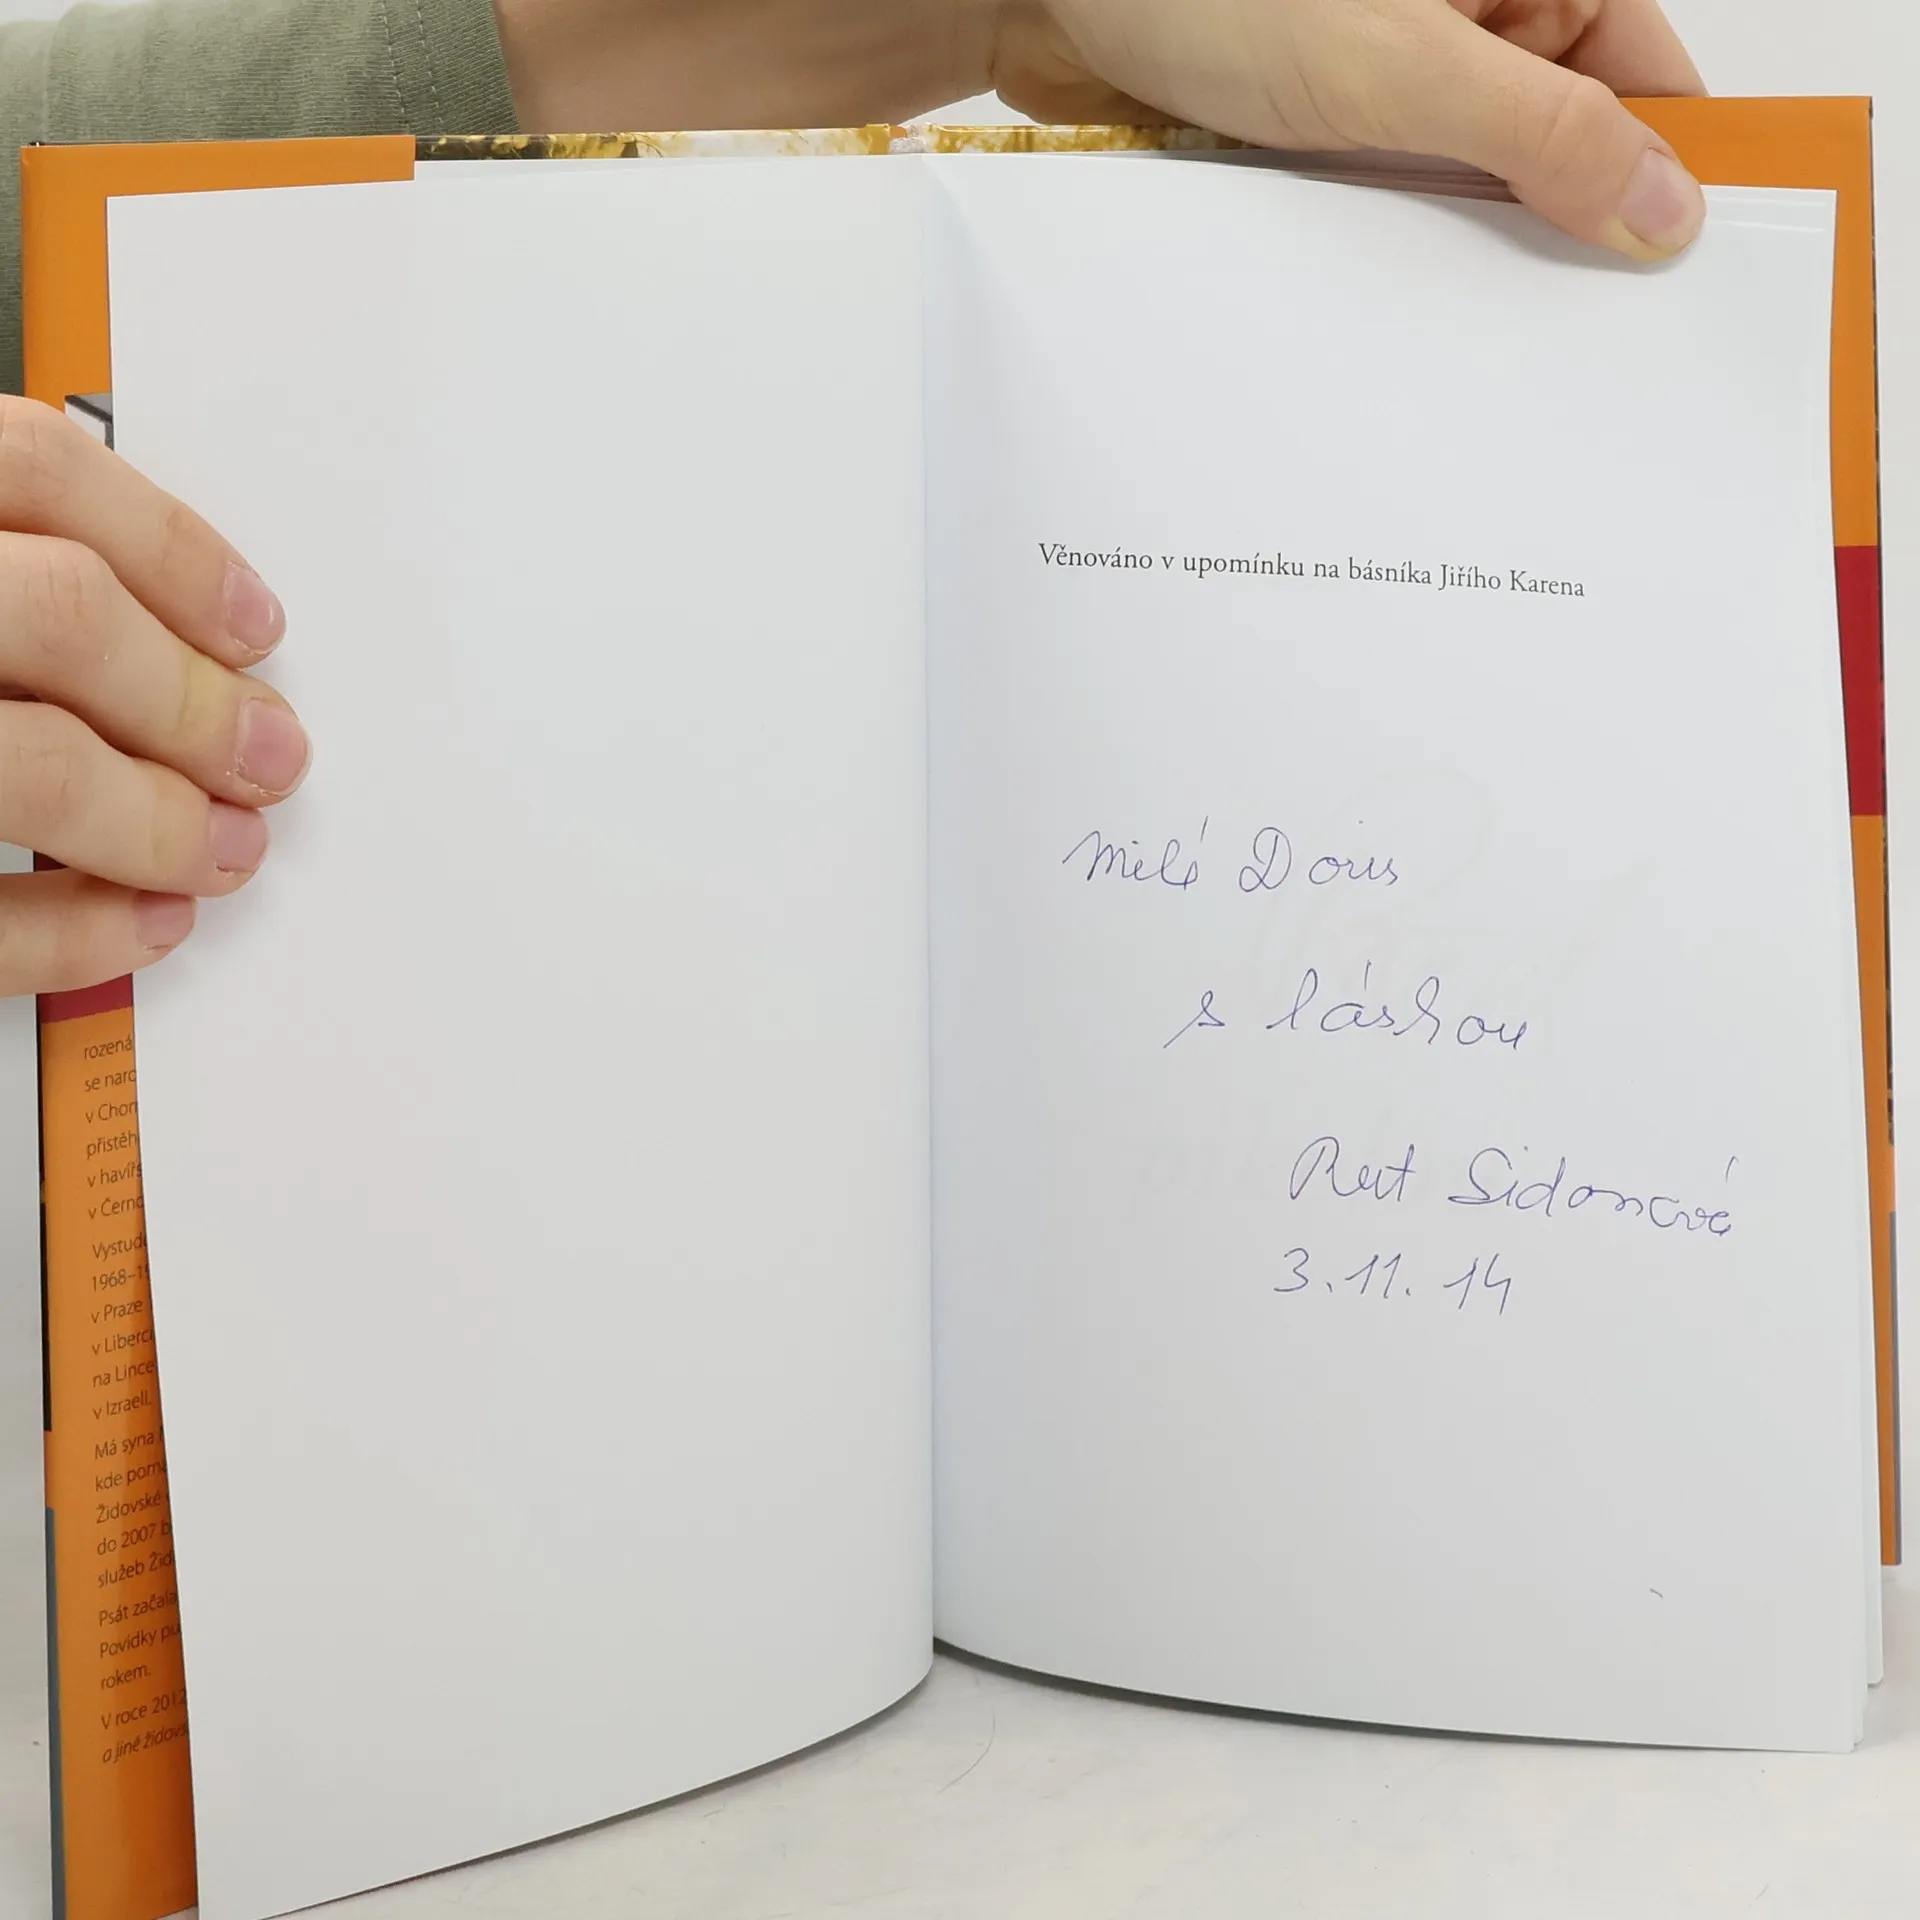 rozená
se naro
v Chom
přistěh
v havířs
v Černo
Vystudo
1968–19
v Praze
v Liberci
na Lince
v Izraeli.
Má syna
kde pom
Židovské
do 2007 b
služeb Žid
Psát začala
Povídky pu
rokem.
V roce 2012
a jiné židovs
Věnováno v upomínku na básníka Jiřího Karena
Milé Doris
s láskou
Rut Sidonová
3.11.14